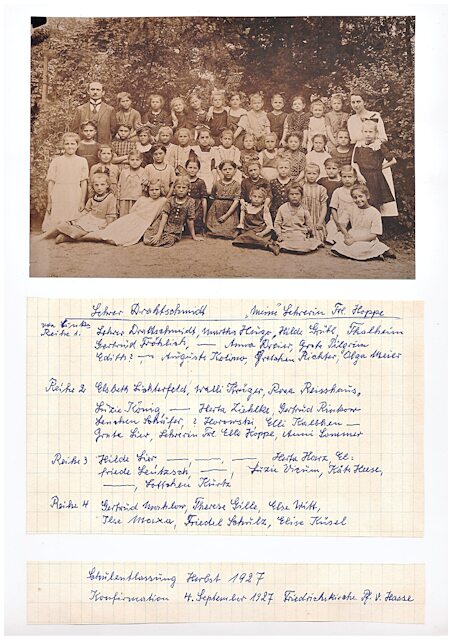 Lehrer Drahtschmidt "Meine" Lehrerin Frl. Hoppe
von links
Reihe 1. Lehrer Drahtschmidt, Martha Heise, Hilde Grütl, Thalheim
Gertrud Fröhlich, — Anna Dreier, Grete Pilgrim
Edith? — Auguste Kolow, Gretchen Richter, Olga Meier
Reihe 2 Elsbeth Lichterfeld, Walli Krüger, Rosa Reisshaus,
Luzie König — Herta Ziehlke, Gertrud Rinkow
Lenchen Schäfer, ? Horowski, Elli Kalbhen —
Grete Lier, Lehrerin Frl Elli Hoppe, Anni Sommer
Reihe 3 Hilde Lier — — —, Herta Harz, El-
friede Leutzsch, —, Luzie Vicum, Käte Heese,
—, Lottchen Kurtz
Reihe 4 Gertrud Markow, Therese Gille, Else Witt,
Ilse Moxa, Friedel Schulz, Elise Küsel
Schulentlassung Herbst 1927
Konfirmation 4. September 1927 Friedrichskirche Pf. V. Haese